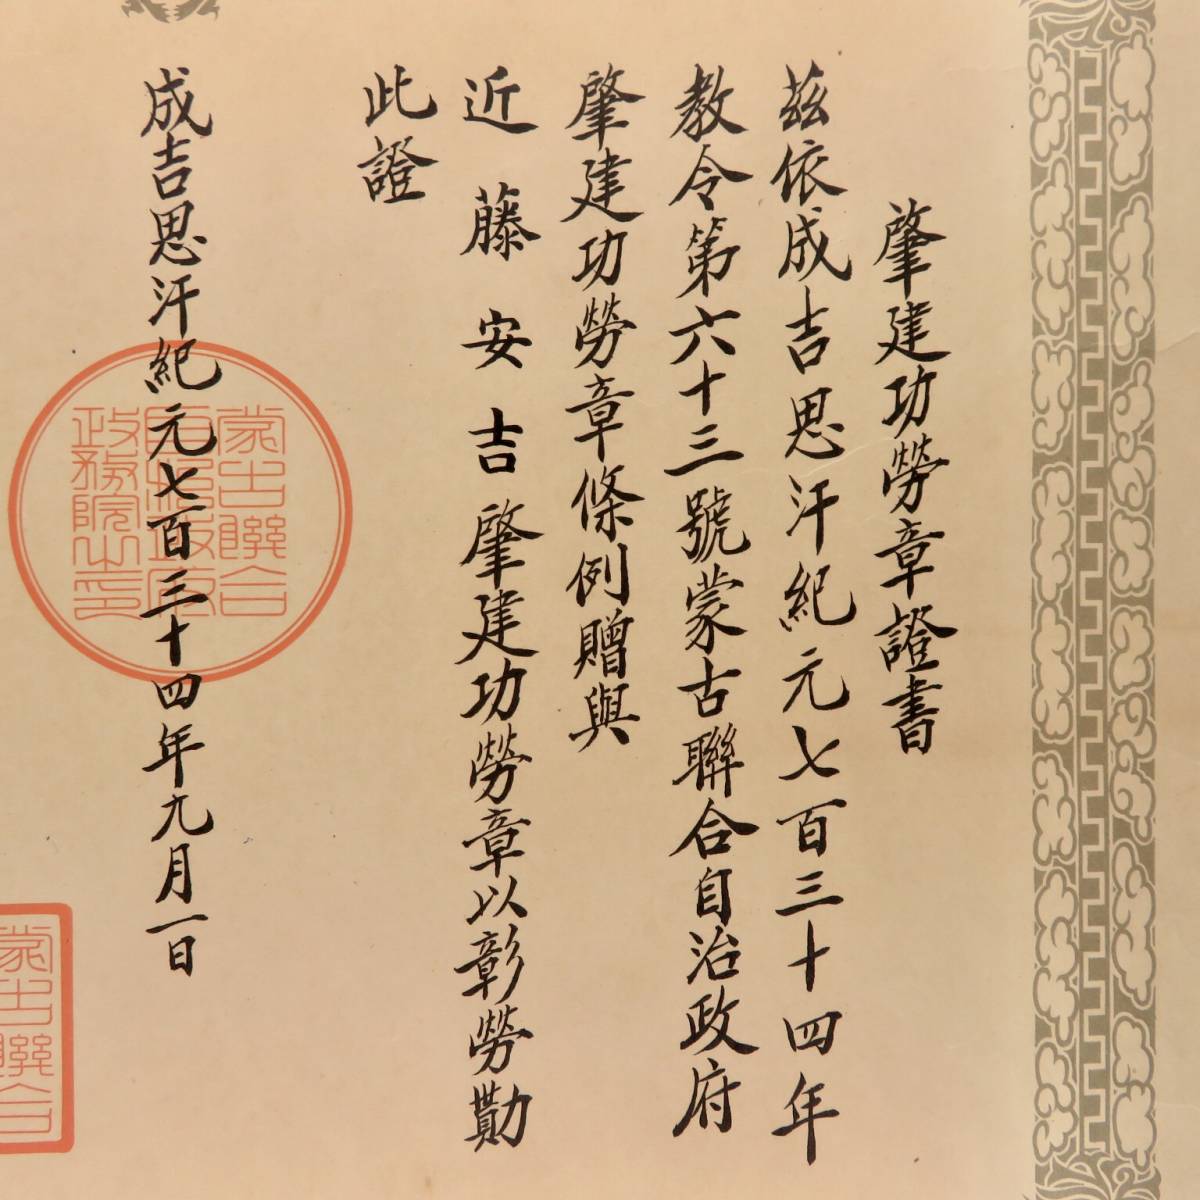 肇建功勞章證書
茲依成吉思汗紀元七百三十四年
教令第六十三號蒙古聯合自治政府
肇建功勞章條例贈與
近藤安吉肇建功勞章以彰勞勩
此證
成吉思汗紀元七百三十四年九月一日
蒙古聯合
自治政府
政務院之印
蒙古聯合